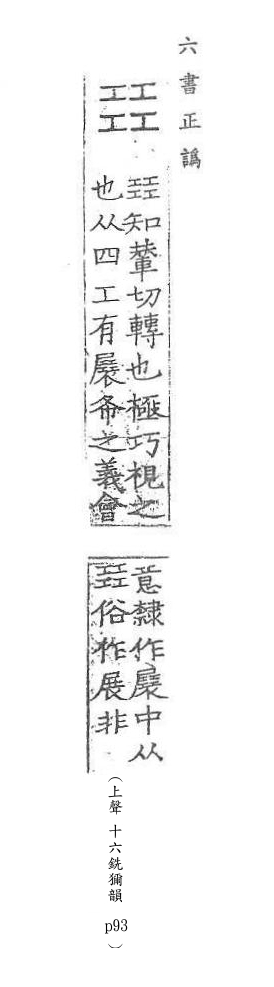 六書正譌
㠭
㠭知輦切轉也極巧視之
也从四工有之義會
意隸作中从
㠭俗作展非
（上聲 十六銑獮韻 p93）